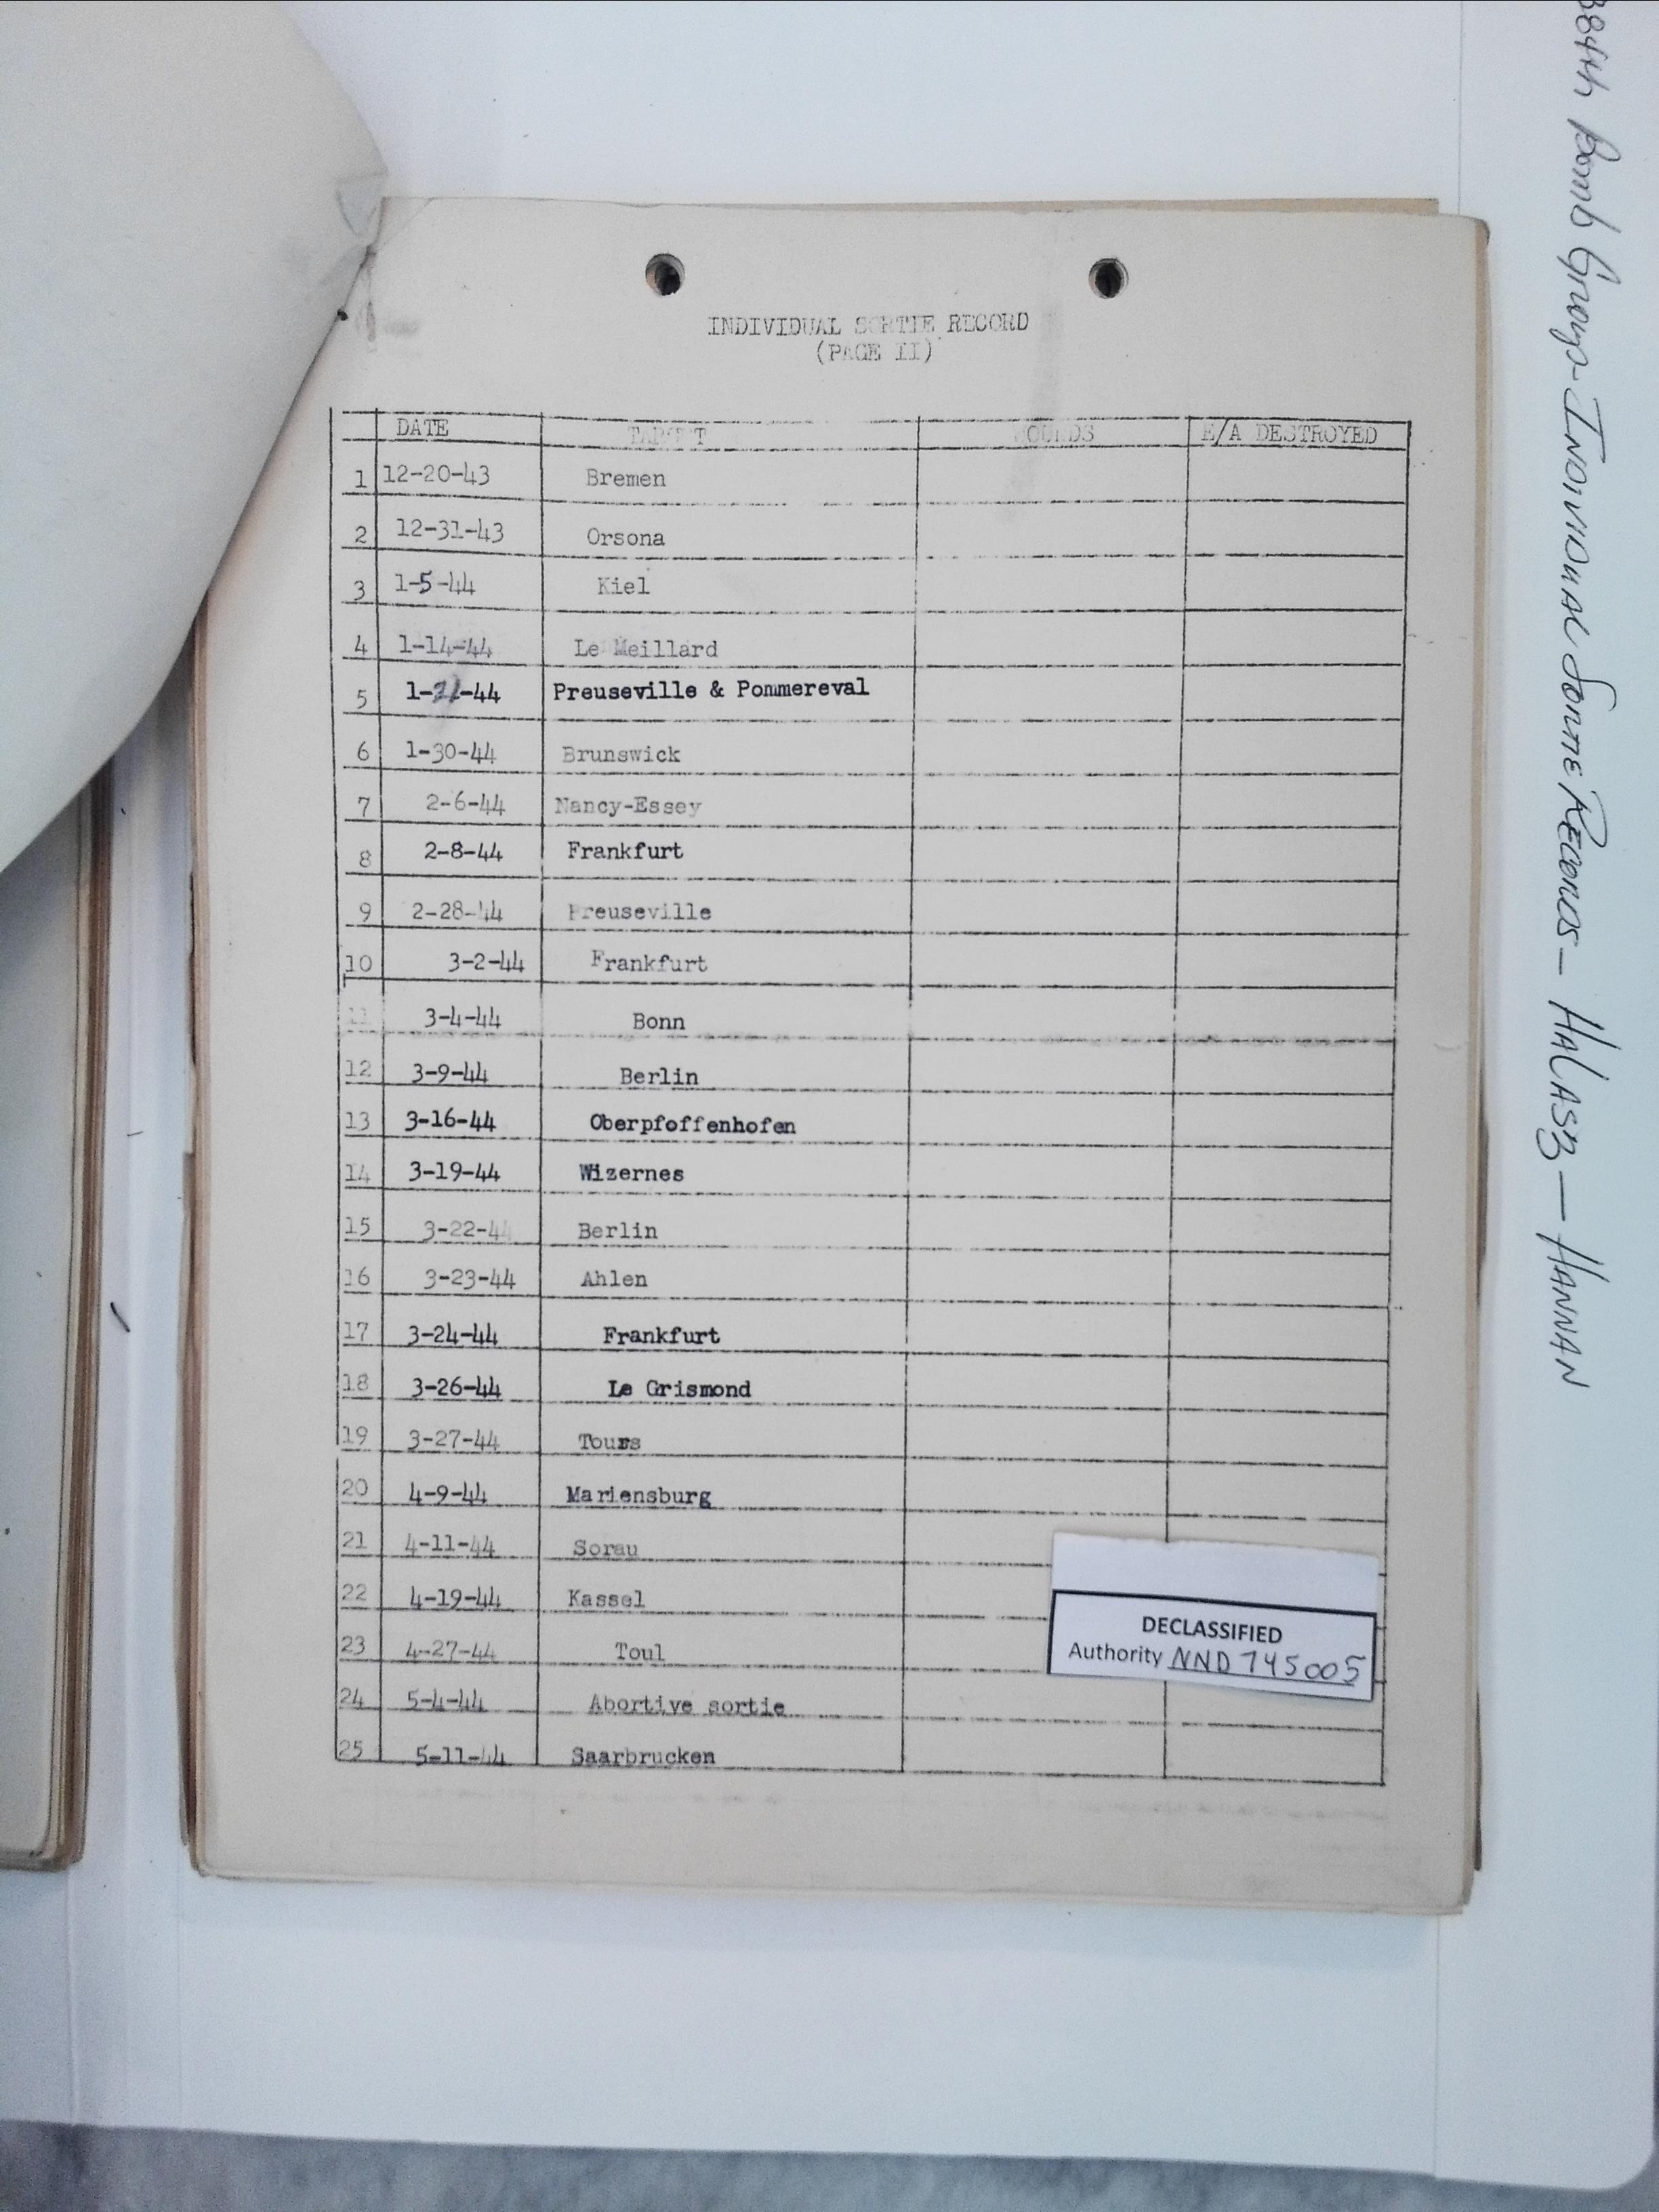 INDIVIDUAL SORTIE RECORD
(PAGE II)
DATE TARGET WOUNDS E/A DESTROYED
1 12-20-43 Bremen
2 12-31-43 Orsona
3 1-5-44 Kiel
4 1-14-44 Le Meillard
5 1-21-44 Preuseville & Pommereval
6 1-30-44 Brunswick
7 2-6-44 Nancy-Essey
8 2-8-44 Frankfurt
9 2-28-44 Preuseville
10 3-2-44 Frankfurt
11 3-4-44 Bonn
12 3-9-44 Berlin
13 3-16-44 Oberpfoffenhofen
14 3-19-44 Wizernes
15 3-22-44 Berlin
16 3-23-44 Ahlen
17 3-24-44 Frankfurt
18 3-26-44 Le Grismond
19 3-27-44 Tours
20 4-9-44 Mariensburg
21 4-11-44 Sorau
22 4-19-44 Kassel
23 4-27-44 Toul
24 5-4-44 Abortive sortie
25 5-11-44 Saarbrucken
DECLASSIFIED
Authority NND 745005
384th Bomb Group - INDIVIDUAL SORTIE RECORDS - HALASZ - HANNAN